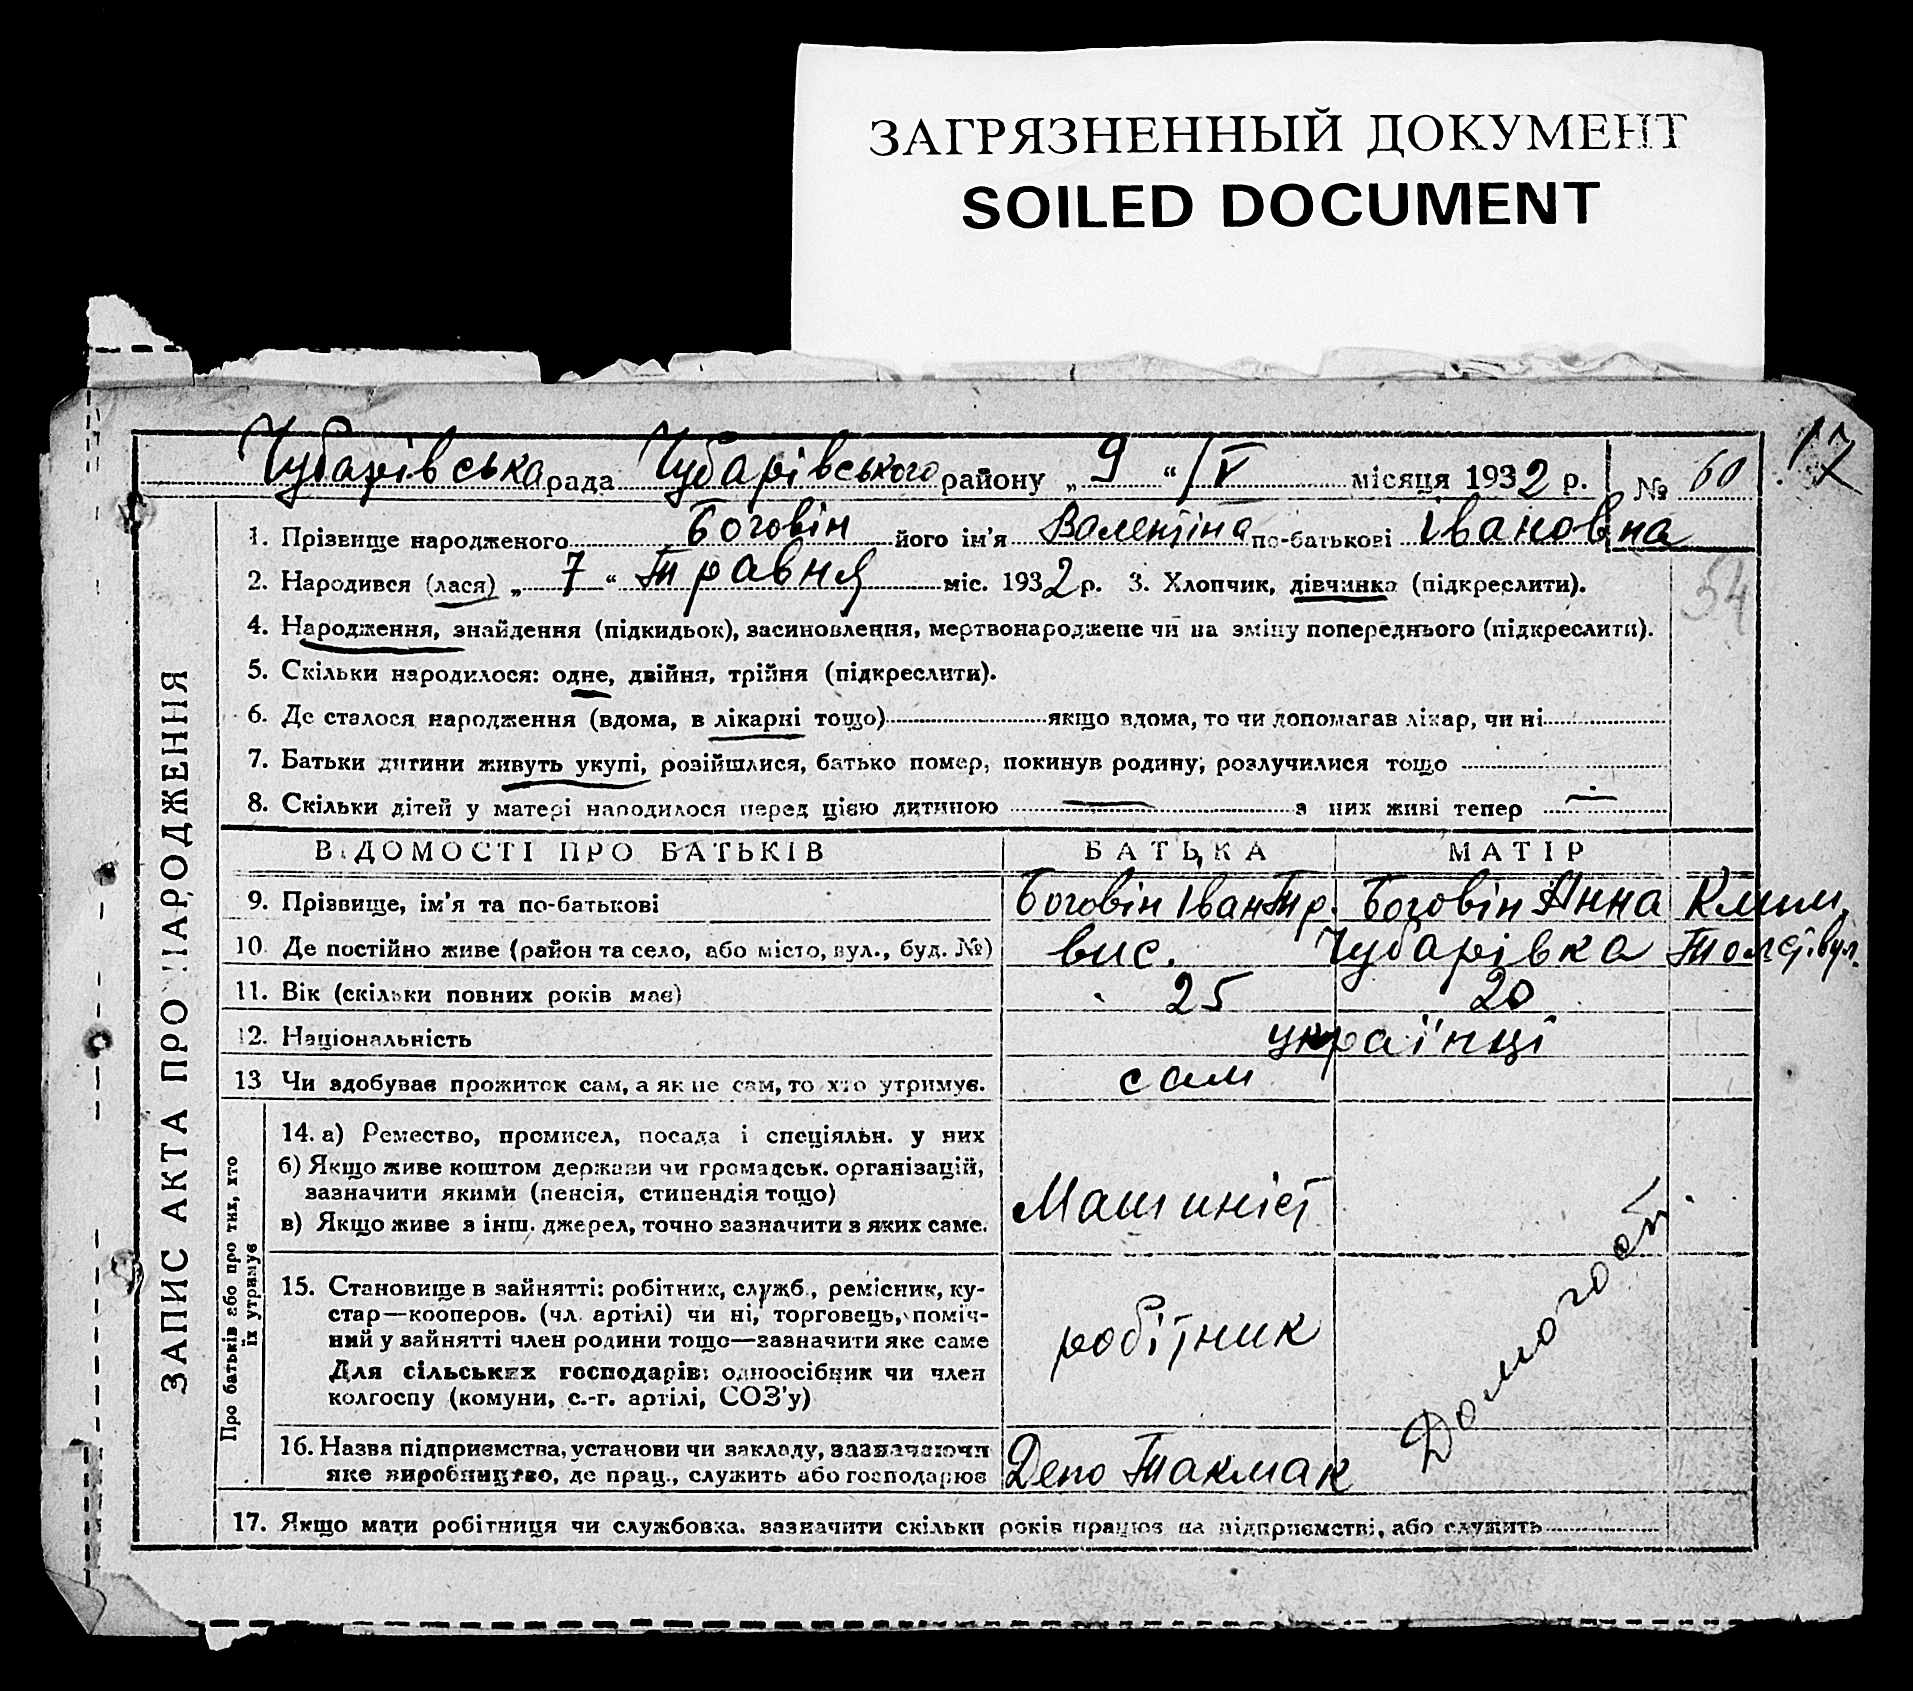 ЗАГРЯЗНЕННЫЙ ДОКУМЕНТ
SOILED DOCUMENT
17
Чубарівська рада Чубарівського району „ 9 “ / V місяця 1932 р. № 60
1. Прізвище народженого Боговін його ім'я Валентіна по-батькові Івановна
2. Народився (лася) „ 7 “ Травня міс. 1932 р. 3. Хлопчик, дівчинка (підкреслити).
54
4. Народження, знайдення (підкидьок), засиновлення, мертвонароджене чи на зміну попереднього (підкреслити).
5. Скільки народилося: одне, двійня, трійня (підкреслити).
6. Де сталося народження (вдома, в лікарні тощо) якщо вдома, то чи допомагав лікар, чи ні
7. Батьки дитини живуть укупі, розійшлися, батько помер, покинув родину, розлучилися тощо
8. Скільки дітей у матері народилося перед цією дитиною — з них живі тепер —
ЗАПИС АКТА ПРО НАРОДЖЕННЯ
ВІДОМОСТІ ПРО БАТЬКІВ БАТЬКА МАТІР
9. Прізвище, ім'я та по-батькові Боговін Іван Тр. Боговін Анна Клим.
10. Де постійно живе (район та село, або місто, вул., буд. №) вис. Чубарівка Толст. вул.
11. Вік (скільки повних років має) 25 20
12. Національність українці
13 Чи здобуває прожиток сам, а як не сам, то хто утримує. сам
Про батьків або про тих, хто
їх утримує
14. а) Ремество, промисел, посада і спеціяльн. у них
б) Якщо живе коштом держави чи громадськ. організацій,
зазначити якими (пенсія, стипендія тощо)
в) Якщо живе з інш. джерел, точно зазначити з яких саме.
Машиніст
Домогосп.
15. Становище в зайнятті: робітник, служб., ремісник, ку-
стар—кооперов. (чл. артілі) чи ні, торговець, поміч-
ний у зайнятті член родини тощо—зазначити яке саме
Для сільських господарів: одноосібник чи член
колгоспу (комуни, с.-г. артілі, СОЗ'у)
робітник
16. Назва підприємства, установи чи закладу, зазначаючи
яке виробництво, де прац., служить або господарює
Депо Такмак
17. Якщо мати робітниця чи службовка, зазначити скільки років працює на підприємстві, або служить